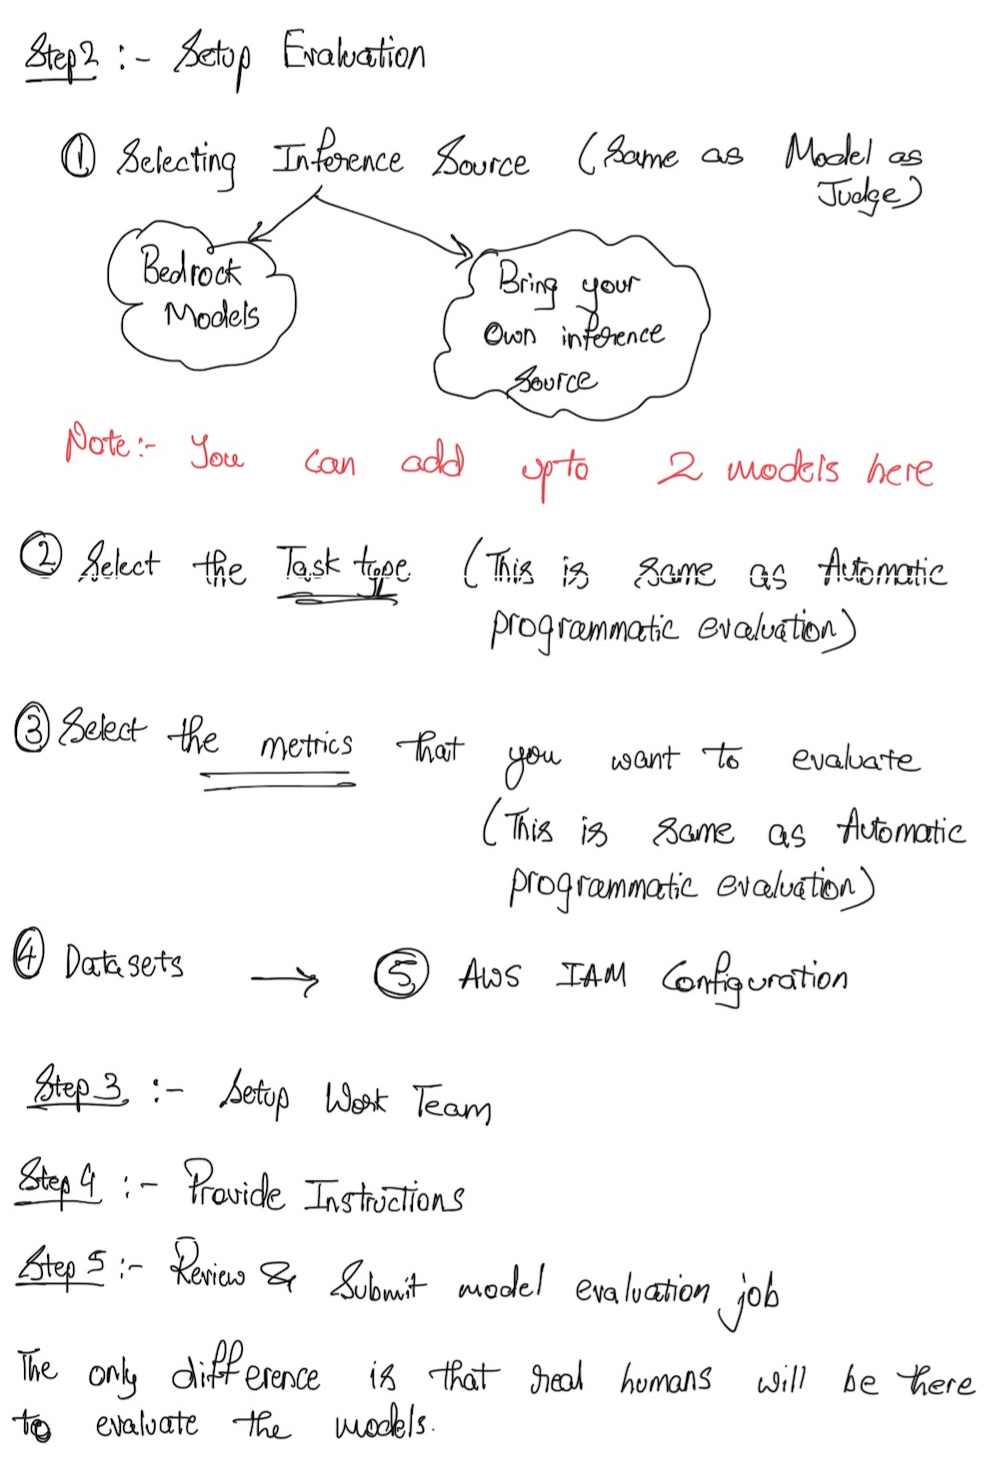 Step2 :- Setup Evaluation
① Selecting Inference Source (Same as Model as
Judge)
Bedrock
Models
Bring your
Own inference
Source
Note:- You can add upto 2 models here
② Select the Task type (This is same as Automatic
programmatic evaluation)
③ Select the metrics that you want to evaluate
(This is same as Automatic
programmatic evaluation)
④ Datasets → ⑤ AWS IAM Configuration
Step 3 :- Setup Work Team
Step 4 :- Provide Instructions
Step 5 :- Review & Submit model evaluation job
The only difference is that real humans will be there
to evaluate the models.